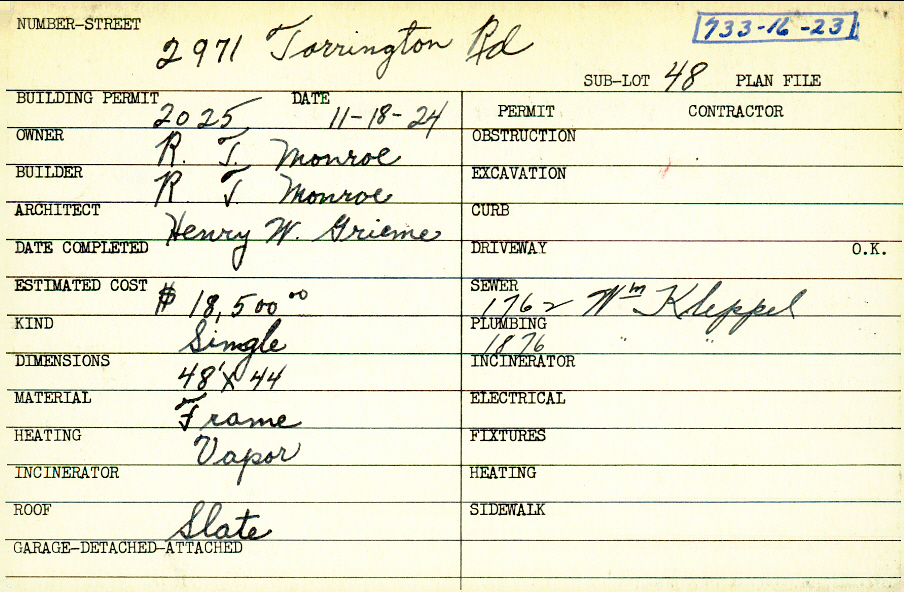 NUMBER-STREET 2971 Torrington Rd 733-16-23
SUB-LOT 48 PLAN FILE
BUILDING PERMIT 2025 DATE 11-18-24
OWNER R. T. Monroe
BUILDER R T. Monroe
ARCHITECT Henry W. Grieme
DATE COMPLETED
ESTIMATED COST $ 18,500 00
KIND Single
DIMENSIONS 48' X 44
MATERIAL Frame
HEATING Vapor
INCINERATOR
ROOF Slate
GARAGE-DETACHED-ATTACHED
PERMIT CONTRACTOR
OBSTRUCTION
EXCAVATION
CURB
DRIVEWAY O.K.
SEWER 1762 Wm Kleppel
PLUMBING 1876 " "
INCINERATOR
ELECTRICAL
FIXTURES
HEATING
SIDEWALK